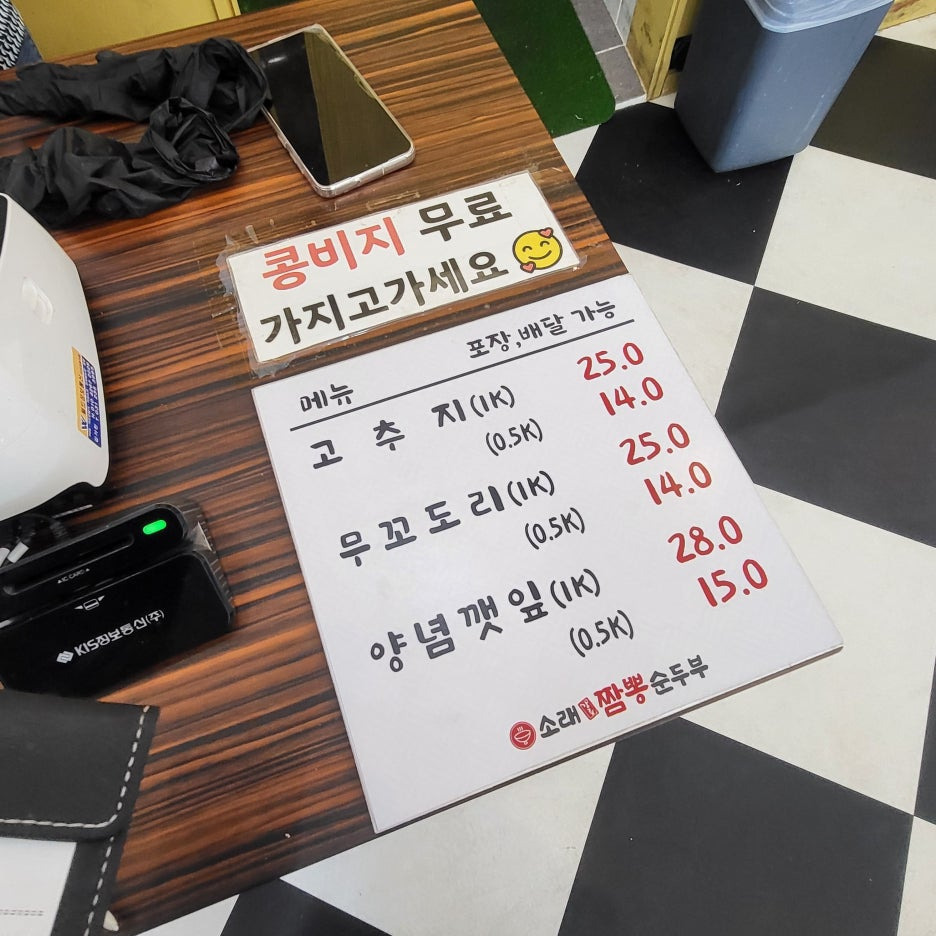 콩비지 무료
가지고가세요
포장,배달 가능
메뉴
고추지(1K) 25.0
(0.5K) 14.0
무꼬도리(1K) 25.0
(0.5K) 14.0
양념깻잎(1K) 28.0
(0.5K) 15.0
소래 짬뽕순두부
IC CARD
KIS정보통신(주)